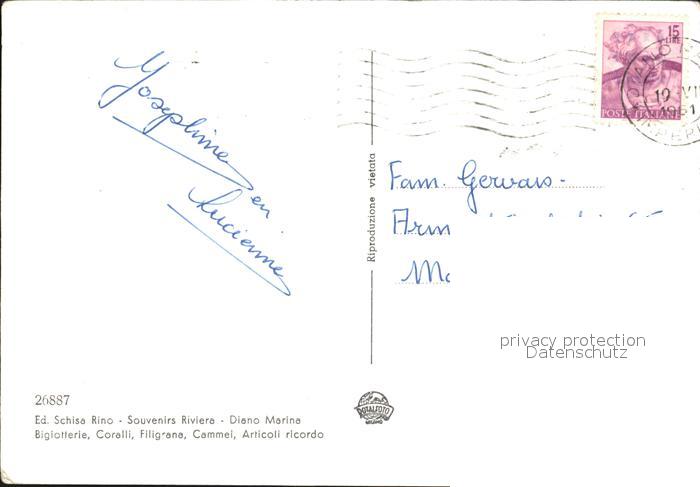 Josephine
en
Lucienne
15
LIRE
POSTE ITALIANE
19 VII
1961
Riproduzione vietata
Fam. Gervais -
Arm
privacy protection
Datenschutz
26887
Ed. Schisa Rino - Souvenirs Riviera - Diano Marina
Bigiotterie, Coralli, Filigrana, Cammei, Articoli ricordo
ROTALFOTO
MILANO